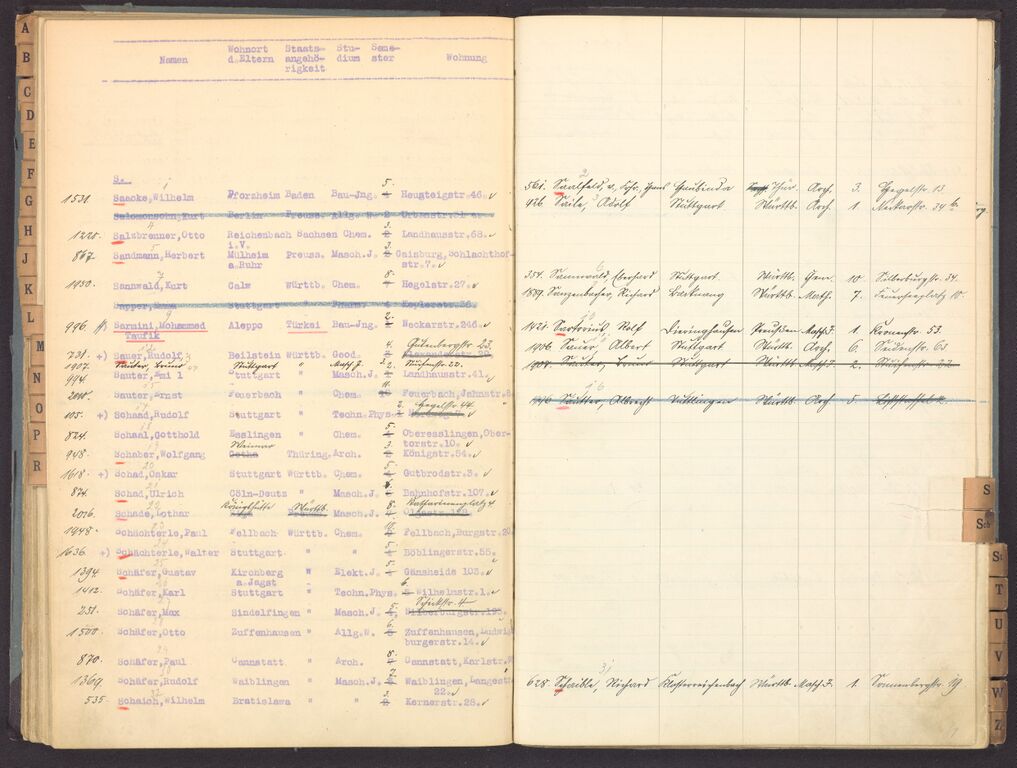 A
B
C
D
E
F
G
H
J
K
L
M
N
O
P
R
Namen Wohnort d.Eltern Staatsangehörigkeit Studium Semester Wohnung
S.
1531. Saacke,Wilhelm Pforzheim Baden Bau-Ing. 5. Heusteigstr.46.
Salomonsohn,Kurt Berlin Preuss. Allg.W. 2 Urbanstr.31
1225. Salzbrenner,Otto Reichenbach i.V. Sachsen Chem. 3. Landhausstr.68.
867. Sandmann,Herbert Mülheim a.Ruhr Preuss. Masch.J. 3. Gaisburg,Schlachthofstr.7.
1930. Sannwald,Kurt Calw Württb. Chem. 8. Hegelstr.27.
Sapper,Emma Stuttgart " Pharm. 4 Keplerstr.36.
996. Sarmini,Mohammed Taufik Aleppo Türkei Bau-Ing. 2. Neckarstr.24d.
731. +) Sauer,Rudolf Beilstein Württb. Geod. 4. Gutenbergstr. 23. Alexanderstr.29
1907. Sauter, Bruno Stuttgart " Masch. J. 2. Stitzenburgstr. 22.
994. Sauter,Emil Stuttgart " Masch.J. Landhausstr.41.
Sauter,Ernst Feuerbach " Chem. 11. Feuerbach,Jahnstr.
105. +) Schaad,Rudolf Stuttgart " Techn.Phys. 2. Hegelstr. 44.
824. Schaal,Gotthold Esslingen " Chem. 5. Oberesslingen,Obertorstr.10.
948. Schaber,Wolfgang Weimar Gotha Thüring. Arch. 3. Königstr.54.
1618. +) Schad,Oskar Stuttgart Württb. Chem. Gutbrodstr.3.
874. Schad,Ulrich Cöln-Deutz " Masch.J. Bahnhofstr.107.
2016. Schade,Lothar Königshütte Württb. Masch.J. 8. Katharinenplatz 4. Olgastr.
1948. Schächterle,Paul Fellbach Württb. Chem. 10. Fellbach,Burgstr.20
1636. +) Schächterle,Walter Stuttgart " " 5. Böblingerstr.55.
1394. Schäfer,Gustav Kirchberg a.Jagst " Elekt.J. Gänsheide 103.
1412. Schäfer,Karl Stuttgart " Techn.Phys. 6. Wilhelmstr.1.
251. Schäfer,Max Sindelfingen " Masch.J. 5. Schickstr. 4 Silberburgstr.
1500. Schäfer,Otto Zuffenhausen " Allg.W. 6. Zuffenhausen,Ludwigsburgerstr.14.
870. Schäfer,Paul Cannstatt " Arch. 8. Cannstatt,Karlstr.
1369. Schäfer,Rudolf Waiblingen " Masch.J. 7. Waiblingen,Langestr. 22.
535. Schaich,Wilhelm Bratislava " " 3. Kernerstr.28.
561. Saalfeld, v. Frhr. Hans Haubinda Thür. Arch. 3. Hegelstr. 13
426 Saile, Adolf Stuttgart Württb. Arch. 1 Neckarstr. 34b
354. Sannwald, Eberhard Stuttgart Württb. Geom. 10. Silberburgstr. 34.
1889. Sanzenbacher, Richard Backnang Württb. Math. 7. Feuerseeplatz 10.
1428. Sartorius, Rolf Dieringhausen Preußen Masch. J. 1. Kronenstr. 53.
1906. Sauer, Albert Stuttgart Württb. Arch. 6. Seidenstr. 63
1907. Sauter, Bruno Stuttgart Württb. Masch. J. 2. Stitzenburgstr. 22
Sautter, Albrecht Tuttlingen Württb. Arch 5.
628. Schaible, Richard Klosterreichenbach Württb. Masch. J. 1 Sonnenbergstr. 19
S
Sch
St
T
U
V
W
Z